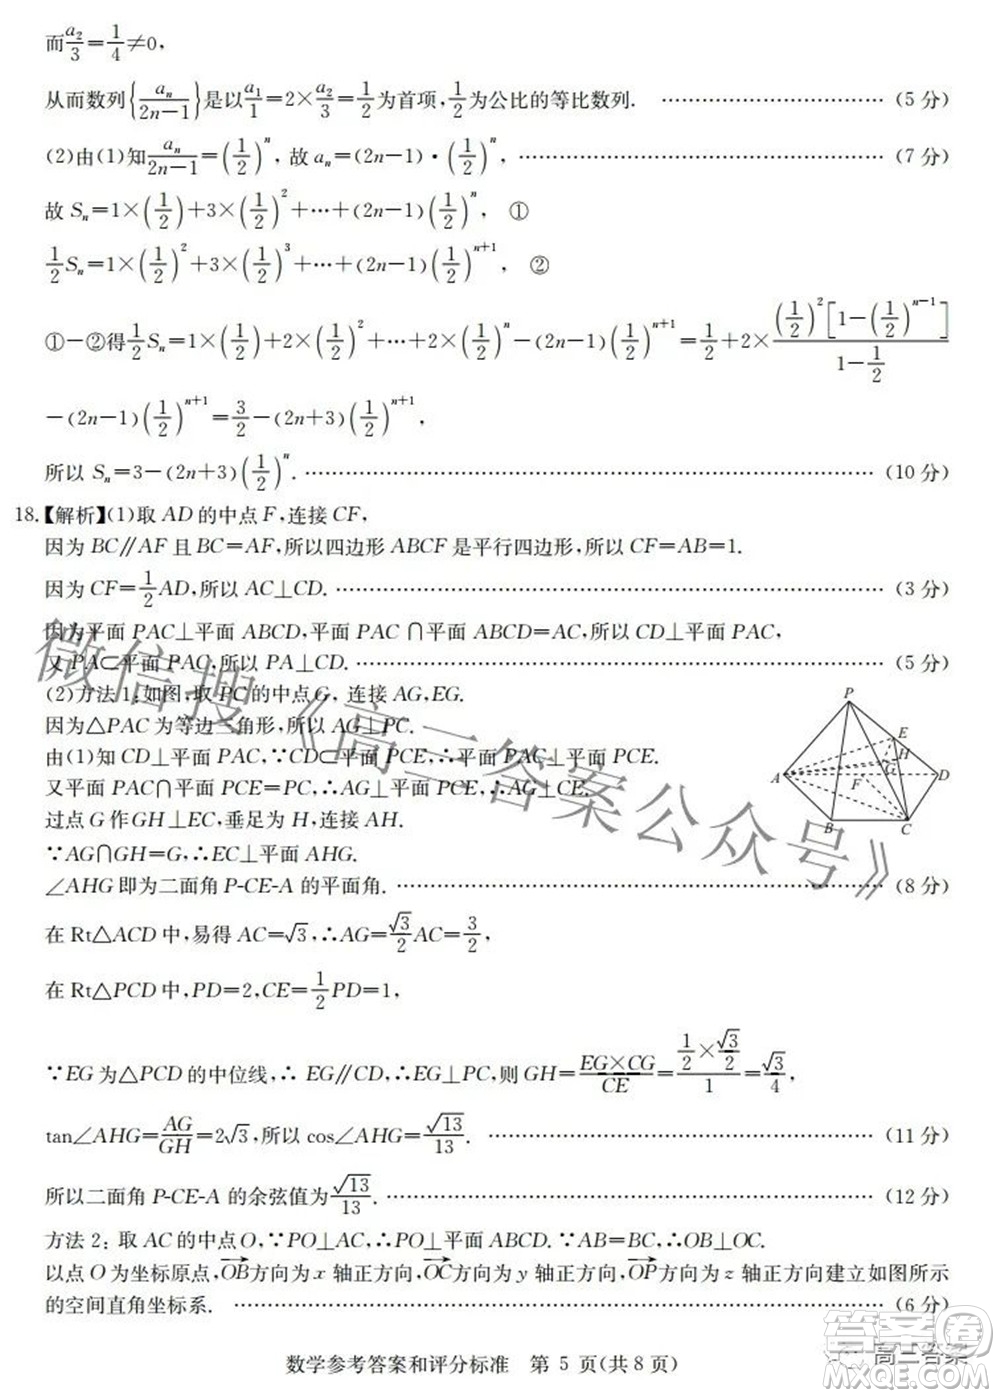 而a₂/3=1/4≠0,
从而数列{aₙ/(2n-1)}是以a₁/1=2×a₂/3=1/2为首项,1/2为公比的等比数列. ………………………… (5 分)
(2)由(1)知aₙ/(2n-1)=(1/2)ⁿ, 故aₙ=(2n-1)·(1/2)ⁿ, ………………………… (7 分)
故 Sₙ=1×(1/2)+3×(1/2)²+…+(2n-1)(1/2)ⁿ, ①
1/2Sₙ=1×(1/2)²+3×(1/2)³+…+(2n-1)(1/2)ⁿ⁺¹, ②
①-②得1/2Sₙ=1×(1/2)+2×(1/2)²+…+2×(1/2)ⁿ-(2n-1)(1/2)ⁿ⁺¹=1/2+2×((1/2)²[1-(1/2)ⁿ⁻¹])/(1-1/2)
-(2n-1)(1/2)ⁿ⁺¹=3/2-(2n+3)(1/2)ⁿ⁺¹,
所以 Sₙ=3-(2n+3)(1/2)ⁿ. ………………………… (10 分)
18.【解析】(1)取 AD 的中点 F,连接 CF,
因为 BC∥AF 且 BC=AF,所以四边形 ABCF 是平行四边形,所以 CF=AB=1.
因为 CF=1/2AD,所以 AC⊥CD. ………………………… (3 分)
因为平面 PAC⊥平面 ABCD,平面 PAC∩平面 ABCD=AC,所以 CD⊥平面 PAC,
又 PA⊂平面 PAC,所以 PA⊥CD. ………………………… (5 分)
(2)方法 1:如图,取 PC 的中点 G, 连接 AG,EG.
因为△PAC 为等边三角形,所以 AG⊥PC.
由(1)知 CD⊥平面 PAC,∵CD⊂平面 PCE,∴平面 PAC⊥平面 PCE.
又平面 PAC∩平面 PCE=PC,∴AG⊥平面 PCE,∴AG⊥CE.
过点 G 作 GH⊥EC,垂足为 H,连接 AH.
∵AG∩GH=G,∴EC⊥平面 AHG.
∠AHG 即为二面角 P-CE-A 的平面角. ………………………… (8 分)
P
E
H
G
A
D
F
B
C
在 Rt△ACD 中,易得 AC=√3,∴AG=√3/2AC=3/2,
在 Rt△PCD 中,PD=2,CE=1/2PD=1,
∵EG 为△PCD 的中位线,∴ EG∥CD,∴EG⊥PC,则 GH=EG×CG/CE=(1/2×√3/2)/1=√3/4,
tan∠AHG=AG/GH=2√3,所以 cos∠AHG=√13/13. ………………………… (11 分)
所以二面角 P-CE-A 的余弦值为√13/13. ………………………… (12 分)
方法 2: 取 AC 的中点 O,∵PO⊥AC,∴PO⊥平面 ABCD.∵AB=BC,∴OB⊥OC.
以点 O 为坐标原点,OB→方向为 x 轴正方向,OC→方向为 y 轴正方向,OP→方向为 z 轴正方向建立如图所示
的空间直角坐标系. ………………………… (6 分)
数学参考答案和评分标准 第 5 页(共 8 页)
微信搜《高三答案公众号》
高三答案
答案圈
MXQE.COM